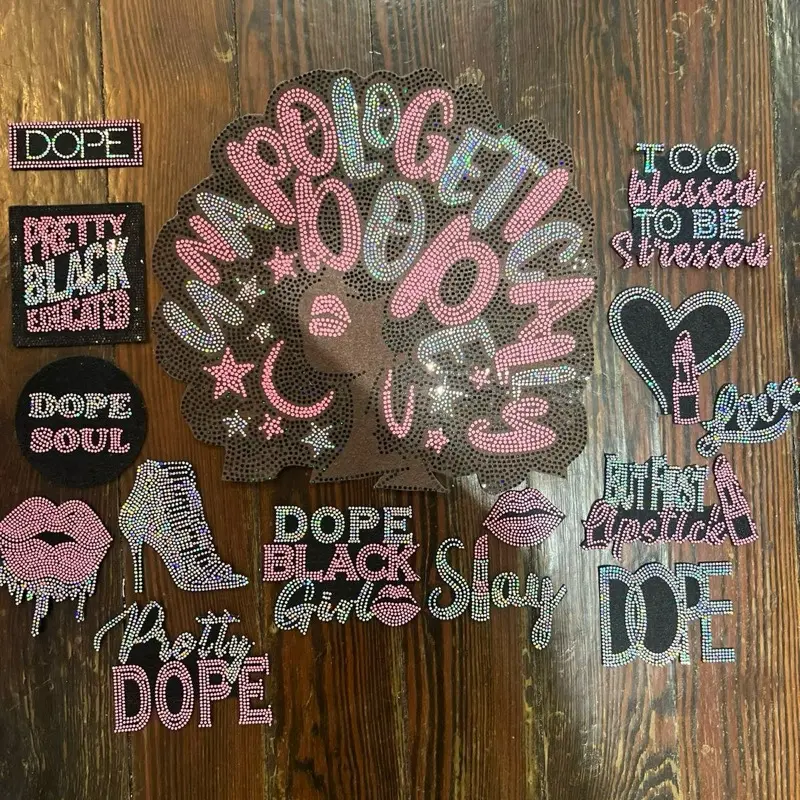 UNAPOLOGETICALLY
DOPE
DOPE
PRETTY
BLACK
EDUCATED
DOPE
SOUL
TOO
blessed
TO BE
Stressed
Love
BUT FIRST
Lipstick
DOPE
BLACK
Girl
Slay
DOPE
Pretty
DOPE